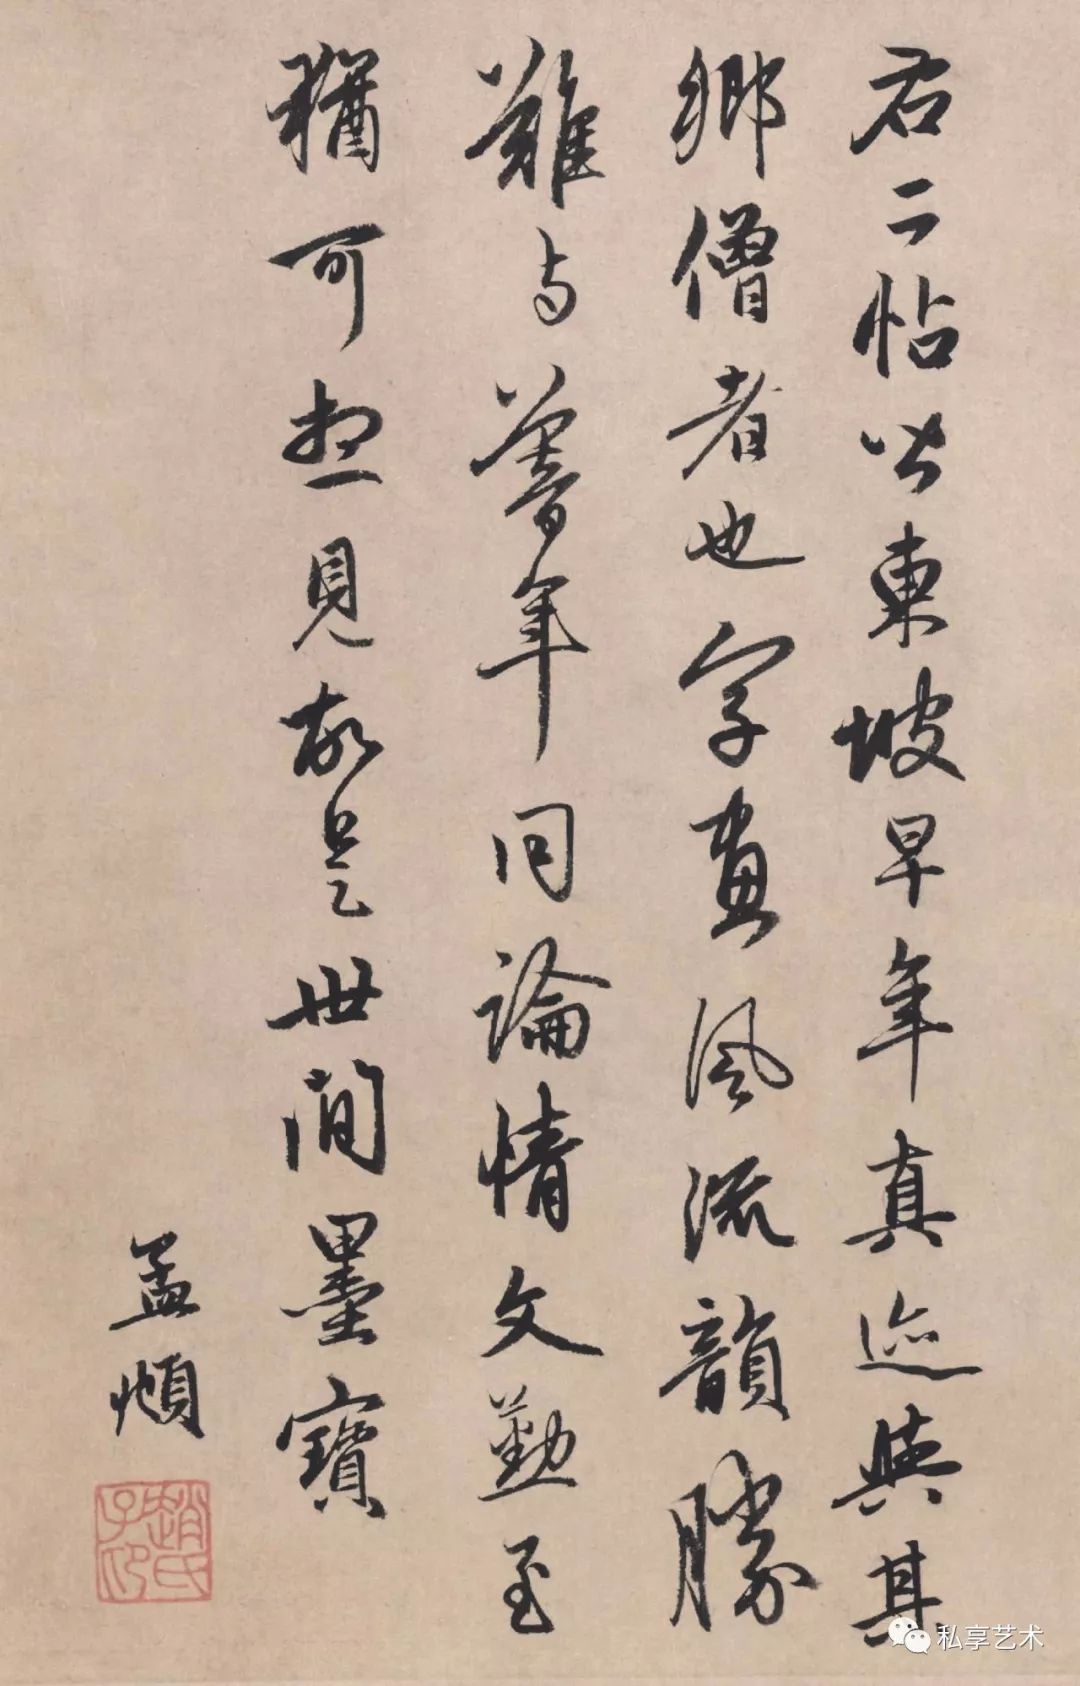 右二帖皆東坡早年真迹與其
鄉僧者也字畫風流韻勝
難與暮年同論情文勤至
猶可想見故是世間墨寶
孟頫
趙氏子印
私享艺术